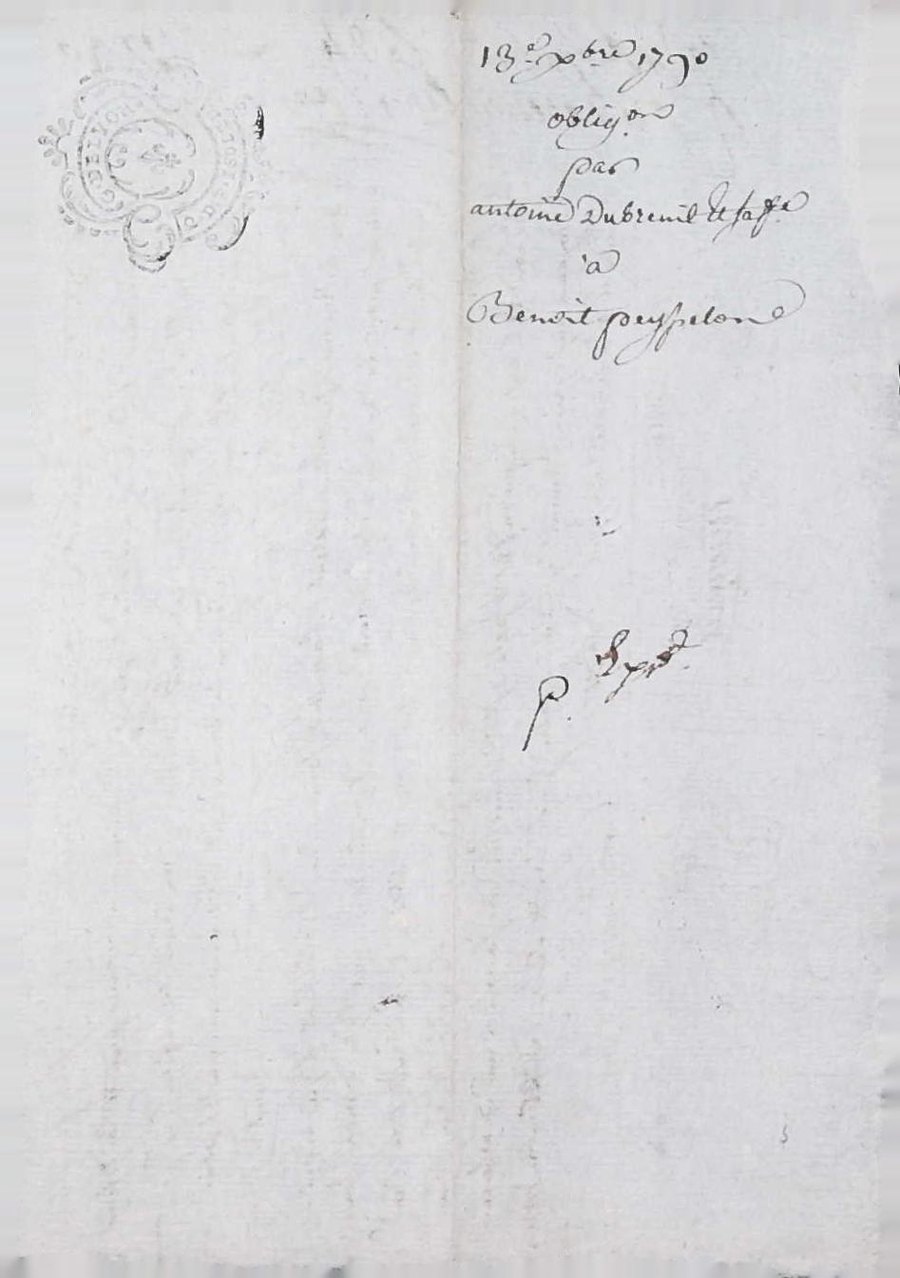 13e xbre 1790
obligon
par
antoine Dubreuil et sa fe
à
Benoit peysselon
p. Expd.